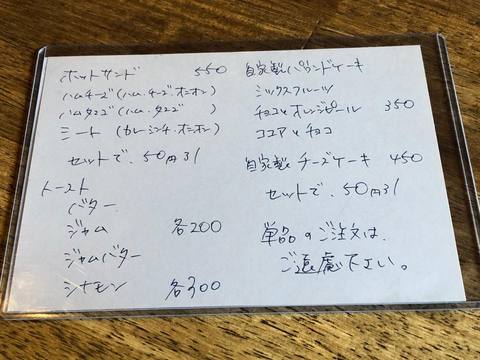 ホットサンド 550
ハムチーズ(ハム.チーズ オニオン)
ハムタマゴ(ハム.タマゴ )
ミート(カレーミンチ.オニオン)
セットで、50円引
トースト
バター
ジャム 各200
ジャムバター
シナモン 各300
自家製パウンドケーキ
ミックスフルーツ
チョコとオレンジピール 350
ココアとチョコ
自家製チーズケーキ 450
セットで、50円引
単品のご注文は、
ご遠慮下さい。